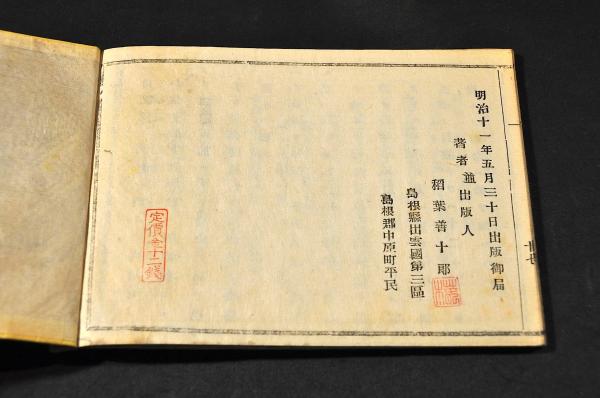 明治十一年五月三十日出版御届
著者兼出版人
稻葉善十郎
島根縣出雲國第三區
島根郡中原町平民
定價金十二錢